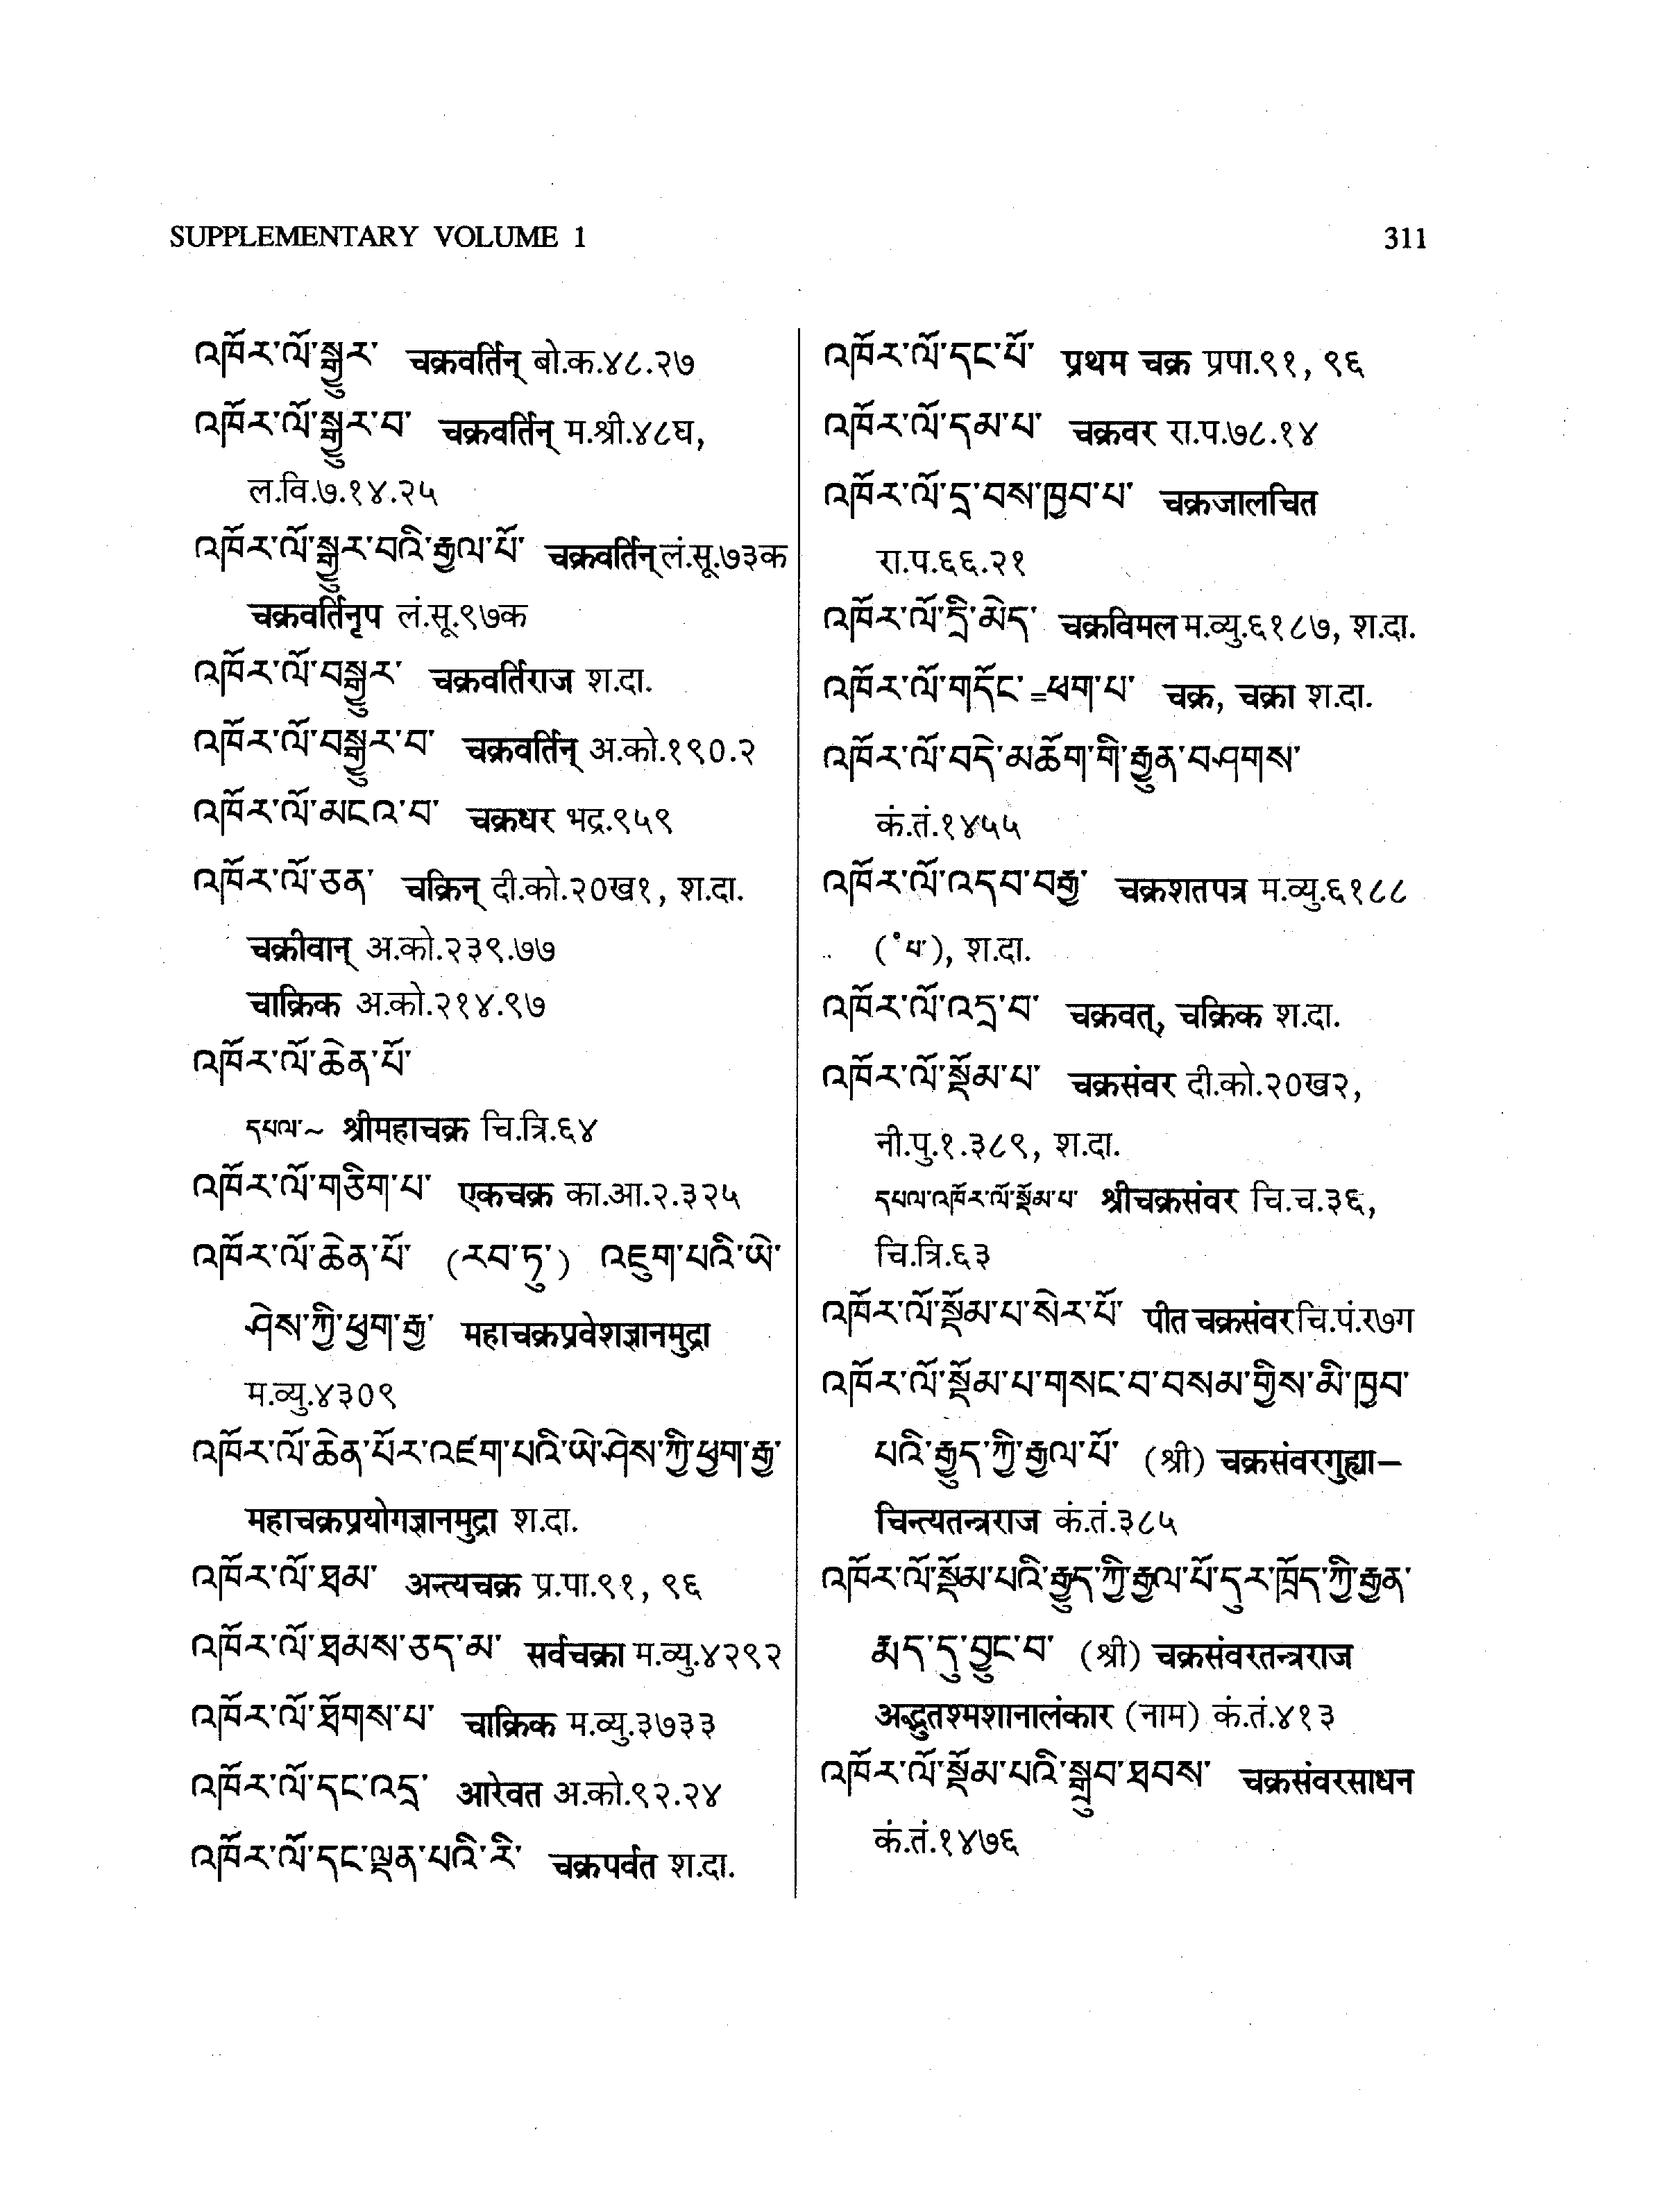 SUPPLEMENTARY VOLUME 1 311
འཁོར་ལོ་སྒྱུར་ चक्रवर्तिन् बो.क.४८.२७
འཁོར་ལོ་སྒྱུར་བ་ चक्रवर्तिन् म.श्री.४८घ,
ल.वि.७.१४.२५
འཁོར་ལོ་སྒྱུར་བའི་རྒྱལ་པོ་ चक्रवर्तिन् लं.सू.७३क
चक्रवर्तिनृप लं.सू.९७क
འཁོར་ལོ་བསྒྱུར་ चक्रवर्तिराज श.दा.
འཁོར་ལོ་བསྒྱུར་བ་ चक्रवर्तिन् अ.को.१९०.२
འཁོར་ལོ་མངའ་བ་ चक्रधर भद्र.९५९
འཁོར་ལོ་ཅན་ चक्रिन् दी.को.२०ख१, श.दा.
चक्रीवान् अ.को.२३९.७७
चाक्रिक अ.को.२१४.९७
འཁོར་ལོ་ཆེན་པོ་
དཔལ་~ श्रीमहाचक्र चि.त्रि.६४
འཁོར་ལོ་གཅིག་པ་ एकचक्र का.आ.२.३२५
འཁོར་ལོ་ཆེན་པོ་ (རབ་ཏུ་) འཇུག་པའི་ཡེ་
ཤེས་ཀྱི་ཕྱག་རྒྱ་ महाचक्रप्रवेशज्ञानमुद्रा
म.व्यु.४३०९
འཁོར་ལོ་ཆེན་པོར་འཛག་པའི་ཡེ་ཤེས་ཀྱི་ཕྱག་རྒྱ་
महाचक्रप्रयोगज्ञानमुद्रा श.दा.
འཁོར་ལོ་ཐམ་ अन्त्यचक्र प्र.पा.९१, ९६
འཁོར་ལོ་ཐམས་ཅད་མ་ सर्वचक्रा म.व्यु.४२९२
འཁོར་ལོ་ཐོགས་པ་ चाक्रिक म.व्यु.३७३३
འཁོར་ལོ་དང་འདྲ་ आरेवत अ.को.९२.२४
འཁོར་ལོ་དང་ལྡན་པའི་རི་ चक्रपर्वत श.दा.
འཁོར་ལོ་དང་པོ་ प्रथम चक्र प्रपा.९१, ९६
འཁོར་ལོ་དམ་པ་ चक्रवर रा.प.७८.१४
འཁོར་ལོ་དྲ་བས་ཁྱབ་པ་ चक्रजालचित
रा.प.६६.२१
འཁོར་ལོ་དྲི་མེད་ चक्रविमल म.व्यु.६१८७, श.दा.
འཁོར་ལོ་གདོང་=ཕག་པ་ चक्र, चक्रा श.दा.
འཁོར་ལོ་བདེ་མཆོག་གི་རྒྱུན་བཤགས་
कं.तं.१४५५
འཁོར་ལོ་འདབ་བརྒྱ་ चक्रशतपत्र म.व्यु.६१८८
(॰པ་), श.दा.
འཁོར་ལོ་འདྲ་བ་ चक्रवत्, चक्रिक श.दा.
འཁོར་ལོ་སྡོམ་པ་ चक्रसंवर दी.को.२०ख२,
नी.पु.१.३८९, श.दा.
དཔལ་འཁོར་ལོ་སྡོམ་པ་ श्रीचक्रसंवर चि.च.३६,
चि.त्रि.६३
འཁོར་ལོ་སྡོམ་པ་སེར་པོ་ पीत चक्रसंवर चि.पं.र७ग
འཁོར་ལོ་སྡོམ་པ་གསང་བ་བསམ་གྱིས་མི་ཁྱབ་
པའི་རྒྱུད་ཀྱི་རྒྱལ་པོ་ (श्री) चक्रसंवरगुह्या–
चिन्त्यतन्त्रराज कं.तं.३८५
འཁོར་ལོ་སྡོམ་པའི་རྒྱུད་ཀྱི་རྒྱལ་པོ་དུར་ཁྲོད་ཀྱི་རྒྱན་
རྨད་དུ་བྱུང་བ་ (श्री) चक्रसंवरतन्त्रराज
अद्भुतश्मशानालंकार (नाम) कं.तं.४१३
འཁོར་ལོ་སྡོམ་པའི་སྒྲུབ་ཐབས་ चक्रसंवरसाधन
कं.तं.१४७६